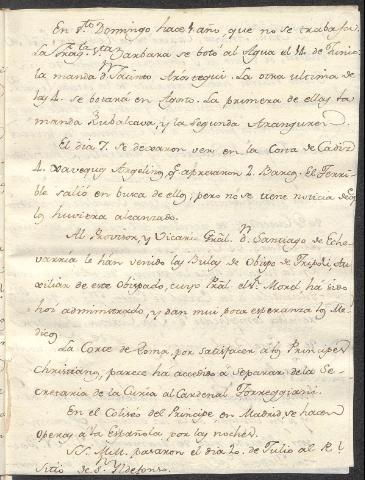 En Sto. Domingo hace 1 año, que no se trabaja.
La Frag.ta Sta. Barbara se botó al Agua el 14 de Junio
la manda Dn Jacinto Aróstegui. La otra ultima de
las 4. se botará en Agosto. La primera de ellas la
manda Rubalcava, y la segunda Aranguren.
El dia 7. se dexaron ver en la Costa de Cadiz
4. xaveques Argelinos, q.e apresaron 2. Barcos. El Terri-
ble salió en busca de ellos; pero no se tiene noticia de q.e
los huviera alcanzado.
Al Provisor, y Vicario Gräl. Dn. Santiago de Eche-
varria le hán venido las Bulas de Obispo de Tripoli, Au-
xiliar de este Obispado, cuyo Prâl el Sr. Morel, ha sido
hoi administrado, y dan mui poca esperanza los Me-
dicos.
La Corte de Roma, por satisfacer â los Principes
Christianos, parece ha accedido a separar de la Se-
cretaria de la Curia al Cardenal Torreggiani.
En el Coliséo del Principe en Madrid, se hacen
Operas â la Española, por las noches.
SS. MM. pasaron el dia 20. de Julio al R.l
Sitio de Sn. Ildefonso.